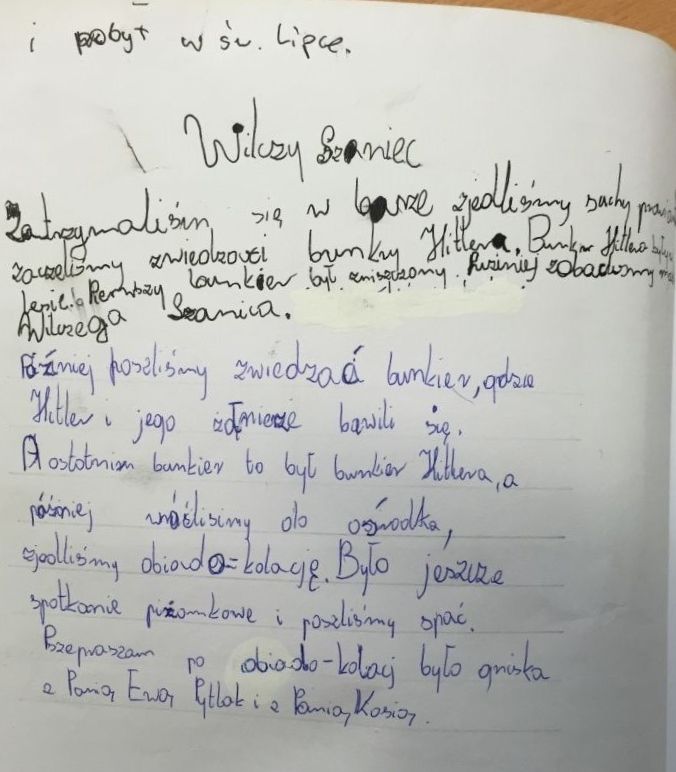 i pobyt w św. Lipce.
Wilczy Szaniec
Zatrzymaliśm się w barze zjedliśmy suchy
zaczeliśmy zwiedzać bunkry Hitlera. Bunkr Hitlera
Pierwszy bunkier był zniszczony. Puźniej zobaczymy
Wilczega Szanica.
Później poszliśmy zwiedzać bunkier, gdzie
Hitler i jego żołnierze bawili się.
A ostatnim bunkier to był bunkier Hitlera, a
później wróćlisimy do ośrodka,
zjedliśmy obiado-kolację. Było jeszcze
spotkanie piżamkowe i poszliśmy spać.
Przepraszam po obiado-kolacj było gniska
z Panią Ewą Pytlak i z Panią Kasią.